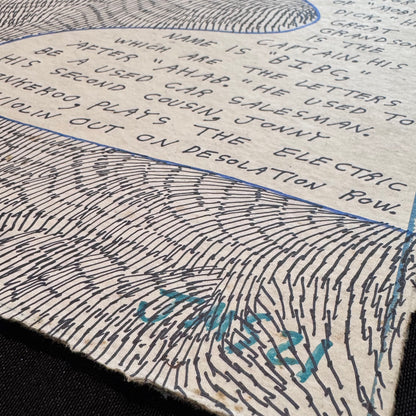 GREAT
GRANDSO
THE
CAPTAIN. HIS
NAME IS BIBG,
WHICH ARE THE LETTERS
AFTER "AHAB. HE USED TO
BE A USED CAR SALESMAN.
HIS SECOND COUSIN, JONNY
NHEROU, PLAYS THE ELECTRIC
VIOLIN OUT ON DESOLATION ROW